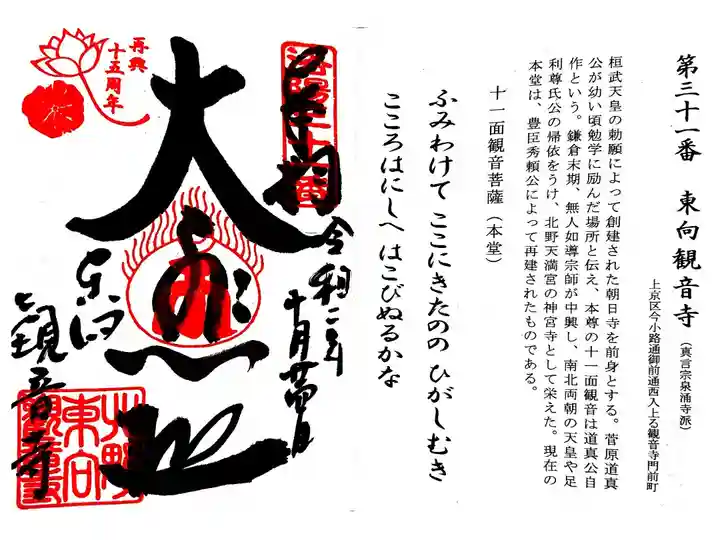 第三十一番 東向観音寺(真言宗泉涌寺派)
上京区今小路通御前通西入上る観音寺門前町
桓武天皇の勅願によって創建された朝日寺を前身とする。菅原道真
公が幼い頃勉学に励んだ場所と伝え、本尊の十一面観音は道真公自
作という。鎌倉末期、無人如導宗師が中興し、南北両朝の天皇や足
利尊氏公の帰依をうけ、北野天満宮の神宮寺として栄えた。現在の
本堂は、豊臣秀頼公によって再建されたものである。
十一面観音菩薩(本堂)
ふみわけて ここにきたのの ひがしむき
こころはにしへ はこびぬるかな
令和二年
十月廿四日
洛陽三十一番
大悲殿
東向
観音寺
北野
東向
観音寺
再興
十五周年